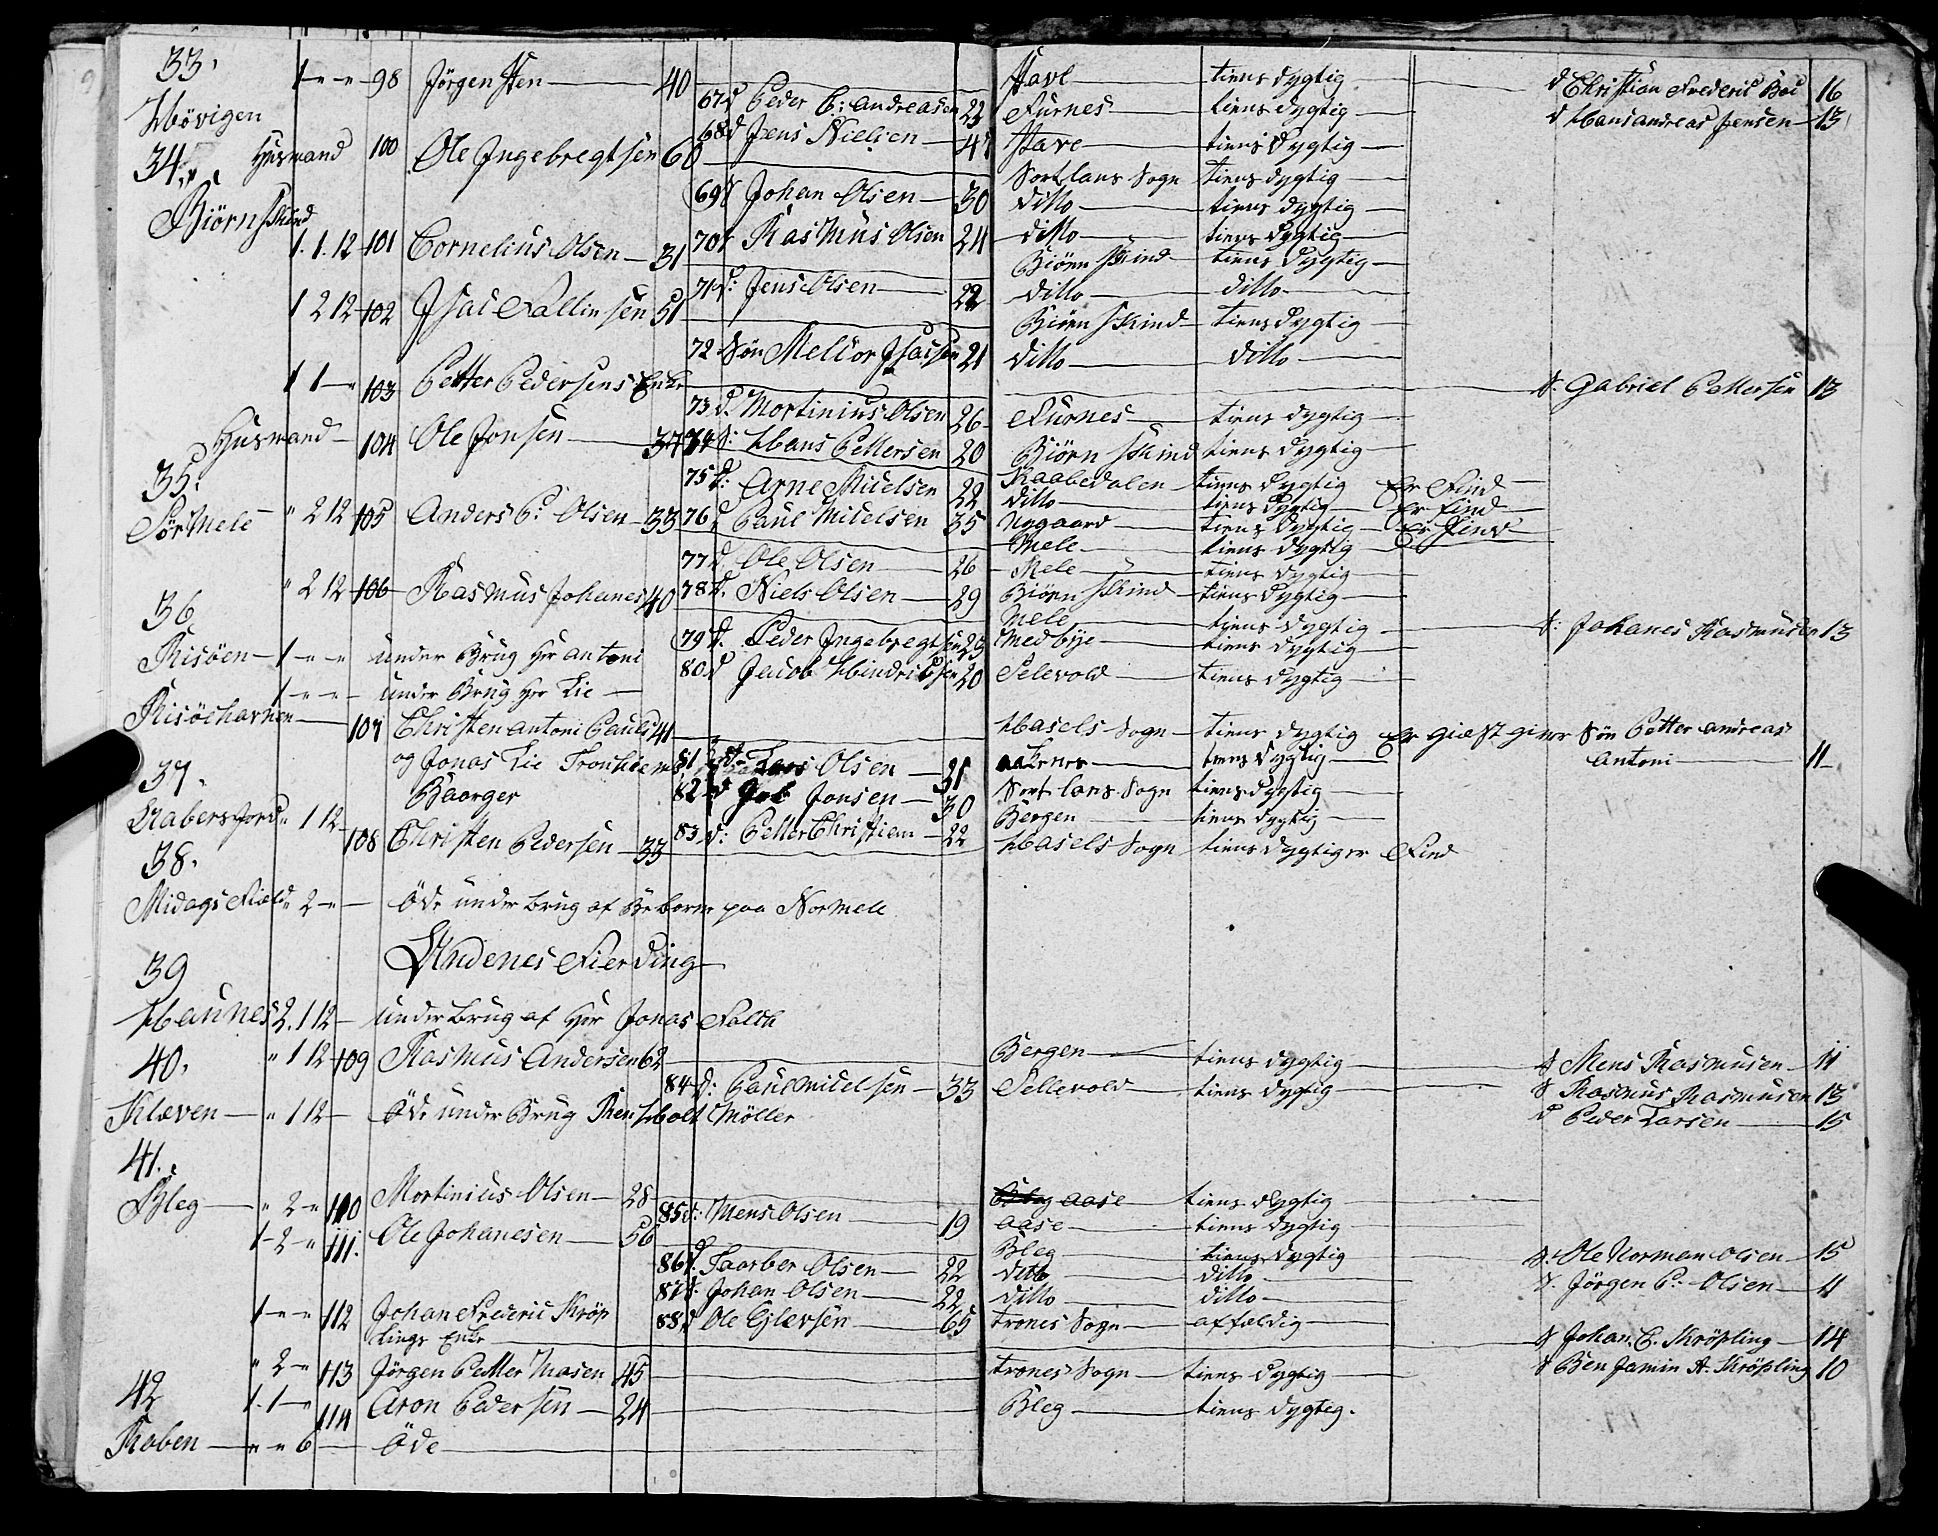 33. 1 " " 98 Jörgen Sten 40 Stave tiens dygtig d Christian Frederic Boc 16
Hövigen 67 d Peder C: Andreasen 23 Furnes tiens dygtig d Hans Andreas Jensen 13
34. Husmand 100 Ole Ingebregtsen 60 68 d Jens Nielsen Stave tiens dygtig
Sortlans Sogn tiens dygtig
Biörnskind 69 d Johan Olsen 30 ditto tiens dygtig
1. 1. 12 101 Cornelius Olsen 31 70 d Rasmus Olsen 24 ditto tiens dygtig
Biörn Skind tiens dygtig
71 d: Jens Olsen 22 ditto ditto
1 2 12 102 Isac Fallinsen 51 Biörn Skind tiens dygtig
72 Sön Melcior Isacsen 21 ditto ditto
1 1 " 103 Petter Pedersens Enke S. Gabriel Pettersen 13
73 d. Mortinius Olsen 26 Furnes tiens dygtig
Husmand 104 Ole Jonsen 37 74 d: Hans Pettersen 20 Biörn Skind tiens dygtig
35. 75 d: Arne Micelsen 22 Kaabedalen tiens dygtig Er Find
ditto tiens dygtig Er Find
Sör Mele " 2 12 105 Anders P: Olsen 33 76 d Paul Micelsen 35 Nygaard tiens dygtig Er Find
Mele tiens dygtig
77 d Ole Olsen 26 Mele tiens dygtig
" 2 12 106 Rasmus Johanes 40 78 d. Niels Olsen 29 Biörn Skind tiens dygtig
36. Mele tiens dygtig S: Johanes Rasmusen 13
Risöen 1 " " under Brug Hr Antoni 79 d. Peder Ingebregtsen 23 Medbye tiens dygtig
1 " " under Brug Hr Lie 80 d Jacob Hindricsen 20 Selevold tiens dygtig
Risöehavnen 107 Christen Antoni Pauls 41 Hasels Sogn tiens dygtig Er giæstgiver Sön Petter Andreas
og Jonas Lie Tronhiems 81 d. Lars Olsen 31 tiens dygtig Antoni 11
37. Baarger 82 d Job Jonsen 30 Sortlans Sogn tiens dygtig
Aabersjord " 1 12 83 d: Petter Christian 22 Bergen tiens dygtig
108 Christen Pedersen 33 Hasels Sogn tiens dygtig er Find
38.
Midags Field " 2 " Öde under brug af Beboerne paa Normele
Andenes Fierding
39
Haunes 2. 1 12 under brug af Hr Jonas Falch
40. " 1 12 109 Rasmus Andersen 62 Bergen tiens dygtig S Mens Rasmusen 11
84 d: Paul Micelsen 33 Sellevold tiens dygtig S Rasmus Rasmusen 13
Klæven " 1 12 Öde under Brug Holt Möller d Peder Larsen 15
41.
Bleg " 2 " 110 Mortinius Olsen 28 Aase tiens dygtig
85 d: Mens Olsen 19 Aase tiens dygtig
1 2 " 111. Ole Johanesen 56 Bleg tiens dygtig S: Ole Norman Olsen 15
86 d. Taarber Olsen 22 ditto ditto S. Jörgen P. Olsen 11
87 d: Johan Olsen 22 ditto ditto
1 " " 112 Johan Frederic Kröp 88 d Ole Ejlersen 65 Trones Sogn affældig
lings Enke S Johan C. Kröpling 14
" 2 " 113 Jörgen Petter Masen 45 Trones Sogn tiens dygtig S Benjamin A. Kröpling 10
42 1. 1 " 114 Aron Pedersen 24 Bleg tiens dygtig.
Raben " " 6 Öde